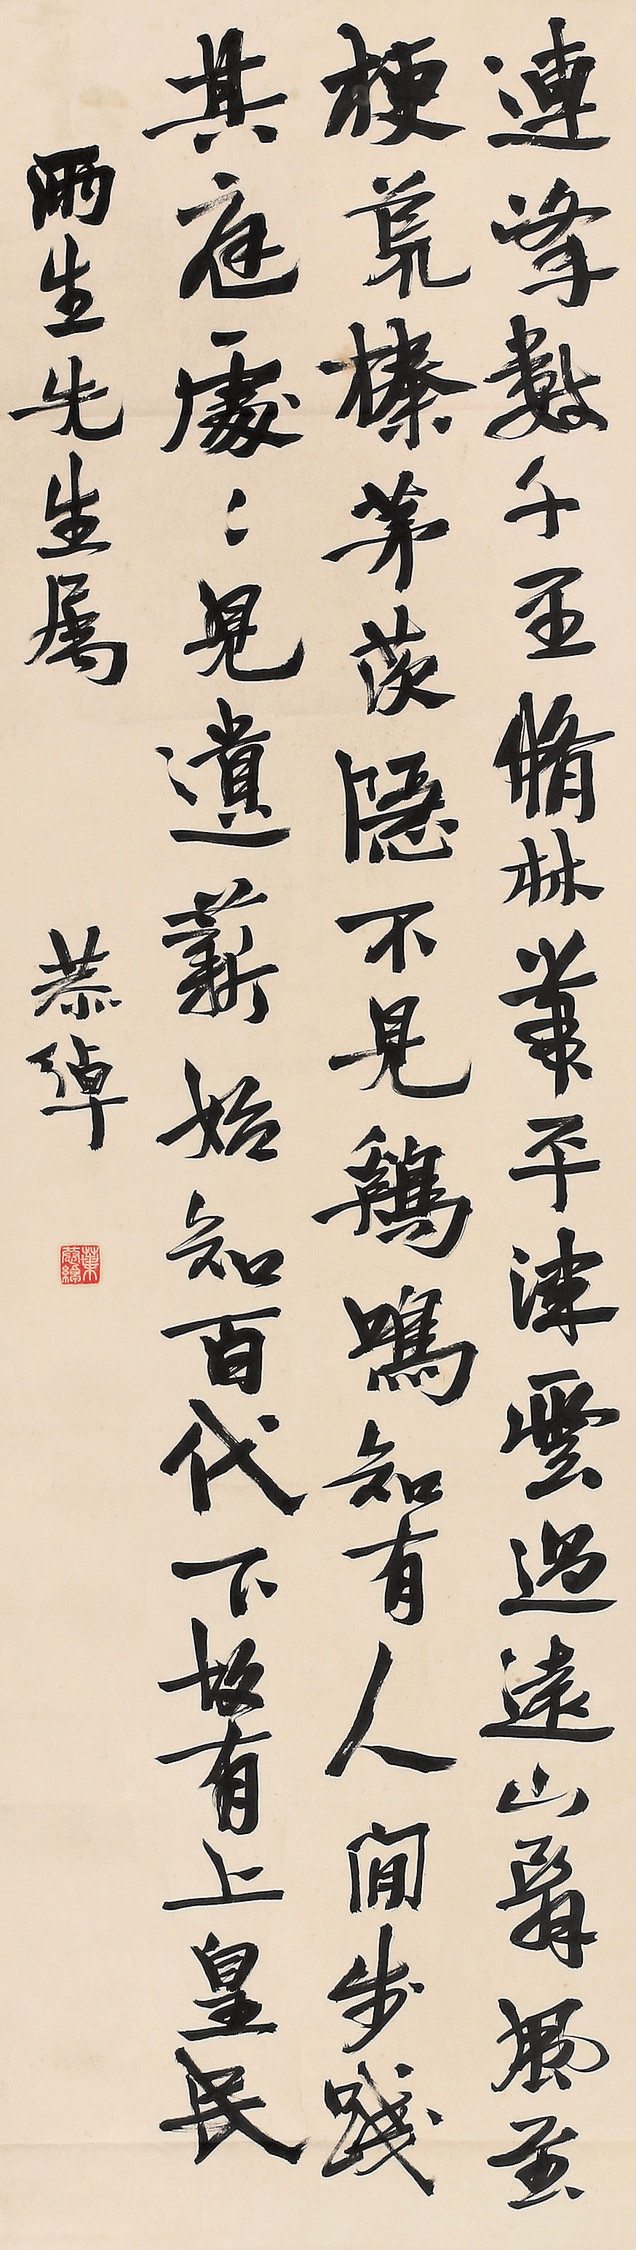 連峯數千里脩林帶平津雲過遠山翳風至
梗荒榛茅茨隱不見鷄鳴知有人閒步踐
其庭處〻見遺薪始知百代下故有上皇民
生先生屬
恭綽
葉恭綽